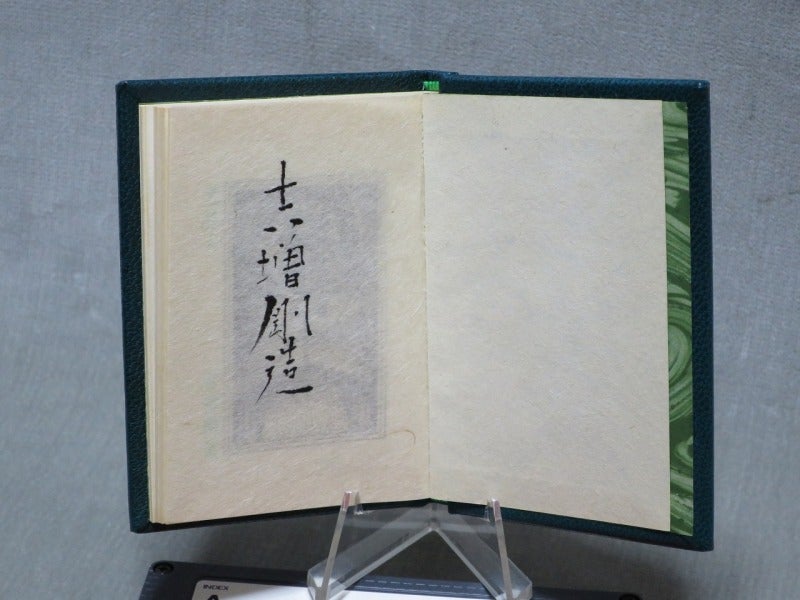 吉増剛造
INDEX
A